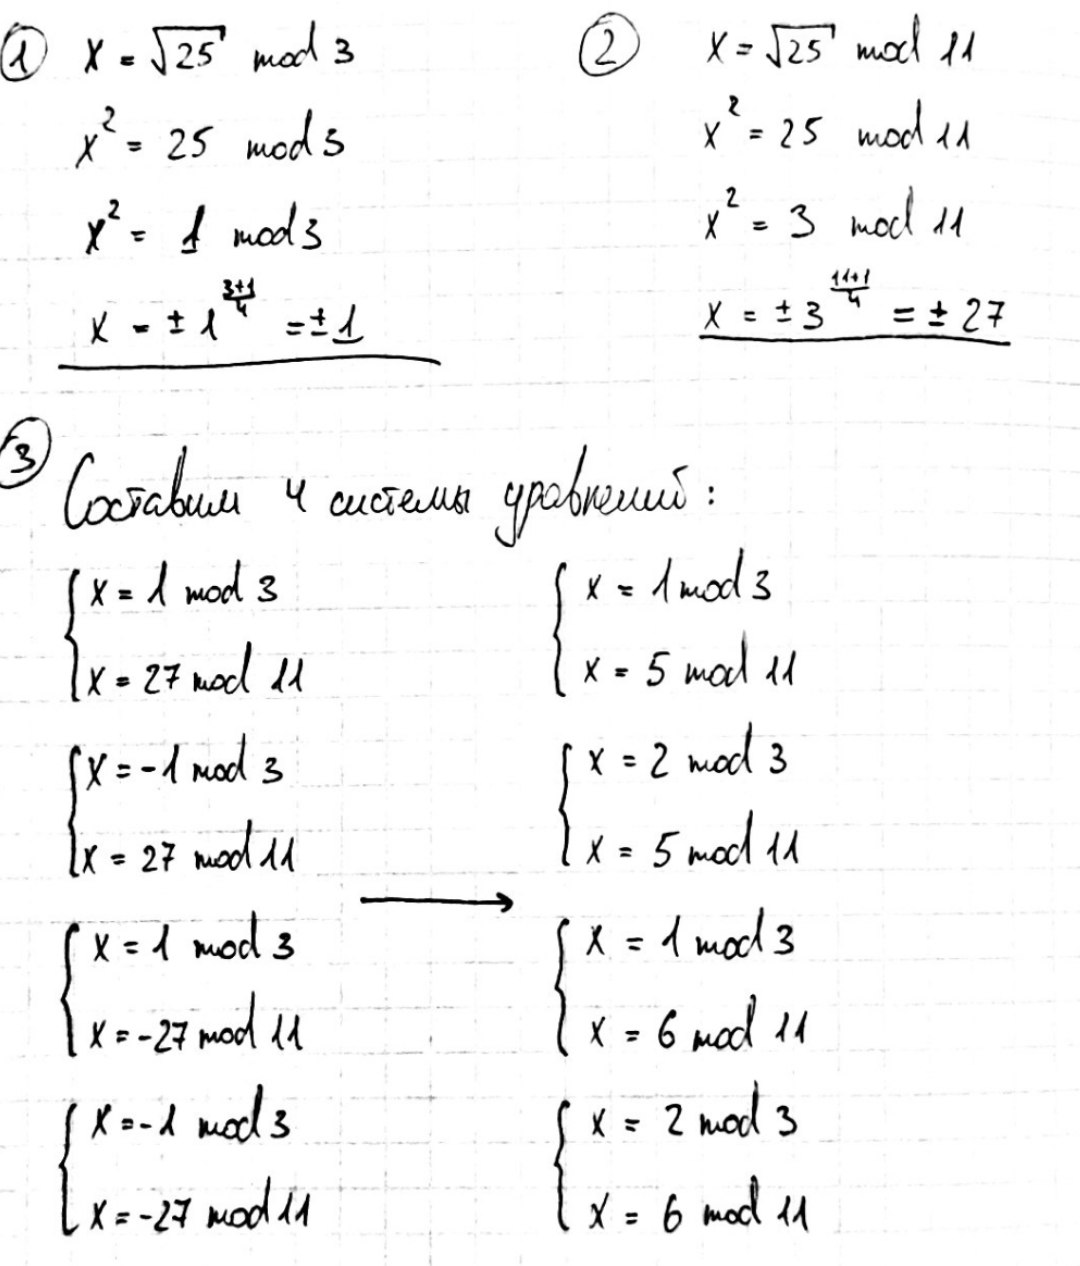 ① x = √25 mod 3
x² = 25 mod 3
x² = 1 mod 3
x = ± 1^((3+1)/4) = ± 1
② x = √25 mod 11
x² = 25 mod 11
x² = 3 mod 11
x = ± 3^((11+1)/4) = ± 27
③ Составим 4 системы уравнений:
{ x = 1 mod 3
x = 27 mod 11
{ x = -1 mod 3
x = 27 mod 11
{ x = 1 mod 3
x = -27 mod 11
{ x = -1 mod 3
x = -27 mod 11
→
{ x = 1 mod 3
x = 5 mod 11
{ x = 2 mod 3
x = 5 mod 11
{ x = 1 mod 3
x = 6 mod 11
{ x = 2 mod 3
x = 6 mod 11